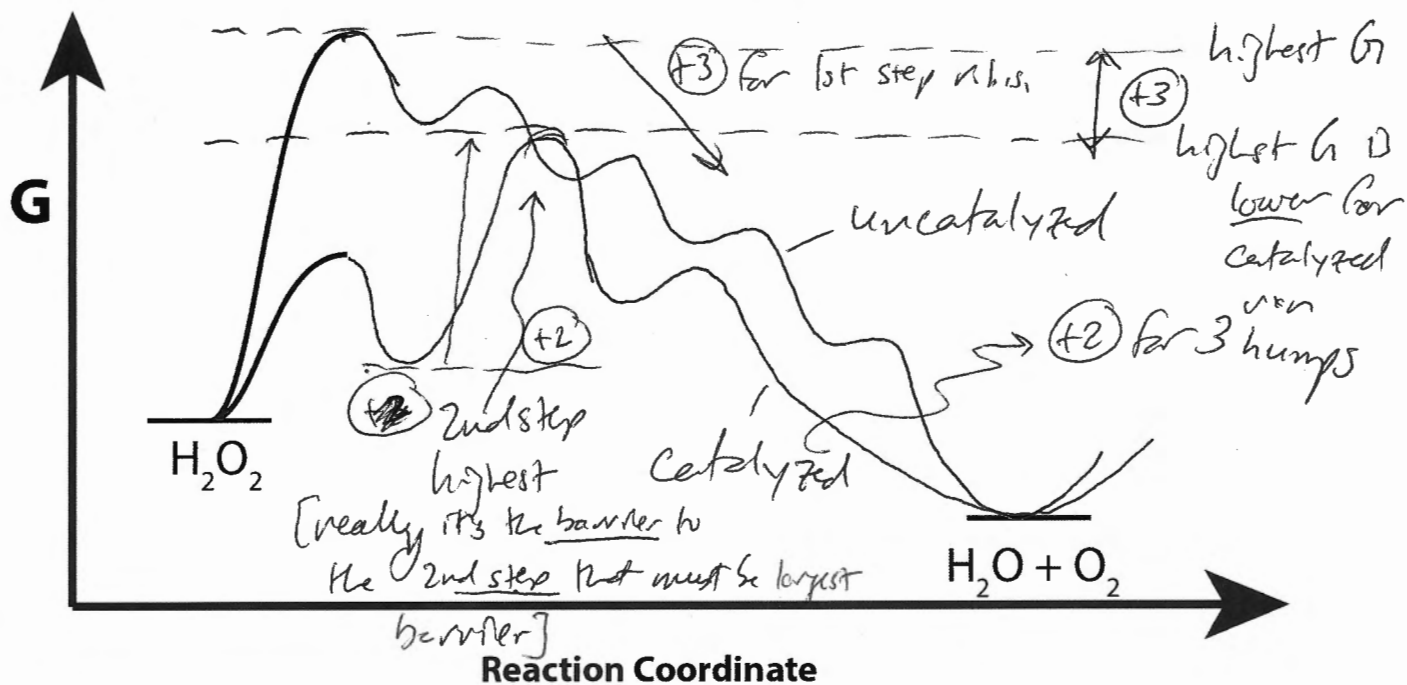 highest G
+3 for 1st step r.d.s.
+3
highest G is
lower for
catalyzed
rxn
G
uncatalyzed
+2 for 3 humps
+2
2nd step
highest
catalyzed
H₂O₂
[really, it's the barrier to
the 2nd step that must be largest
barrier]
H₂O + O₂
Reaction Coordinate